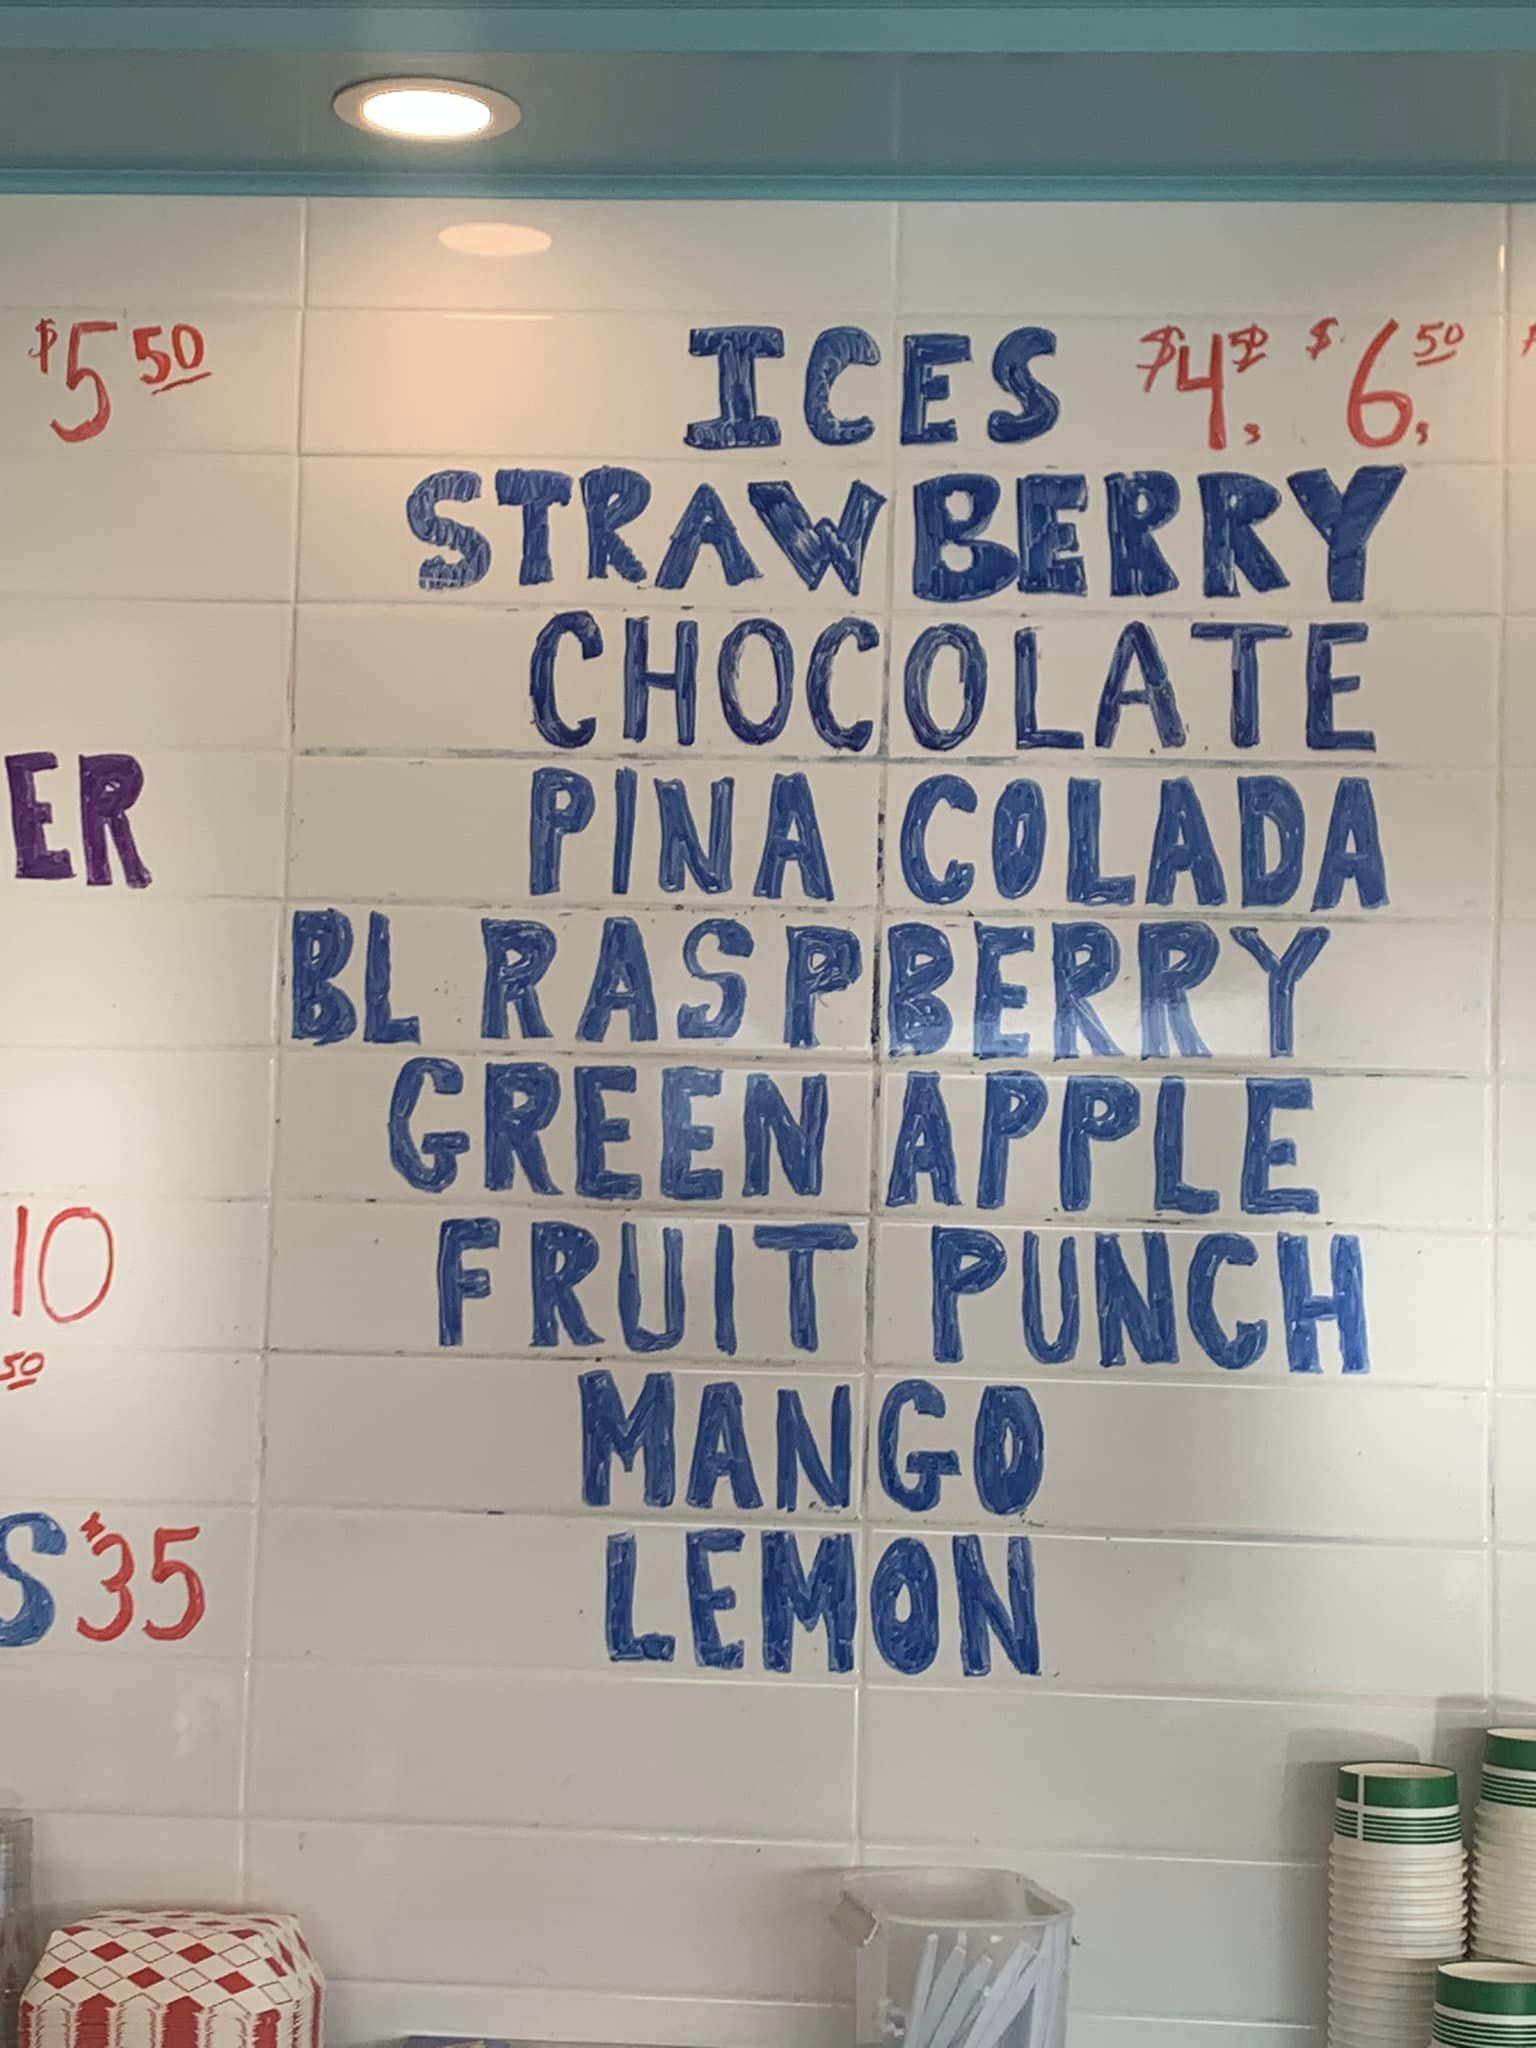 $5 50
ICES $4.50 $6.50
STRAWBERRY
CHOCOLATE
PINA COLADA
ER
BL RASPBERRY
GREEN APPLE
10
FRUIT PUNCH
50
MANGO
S $35
LEMON